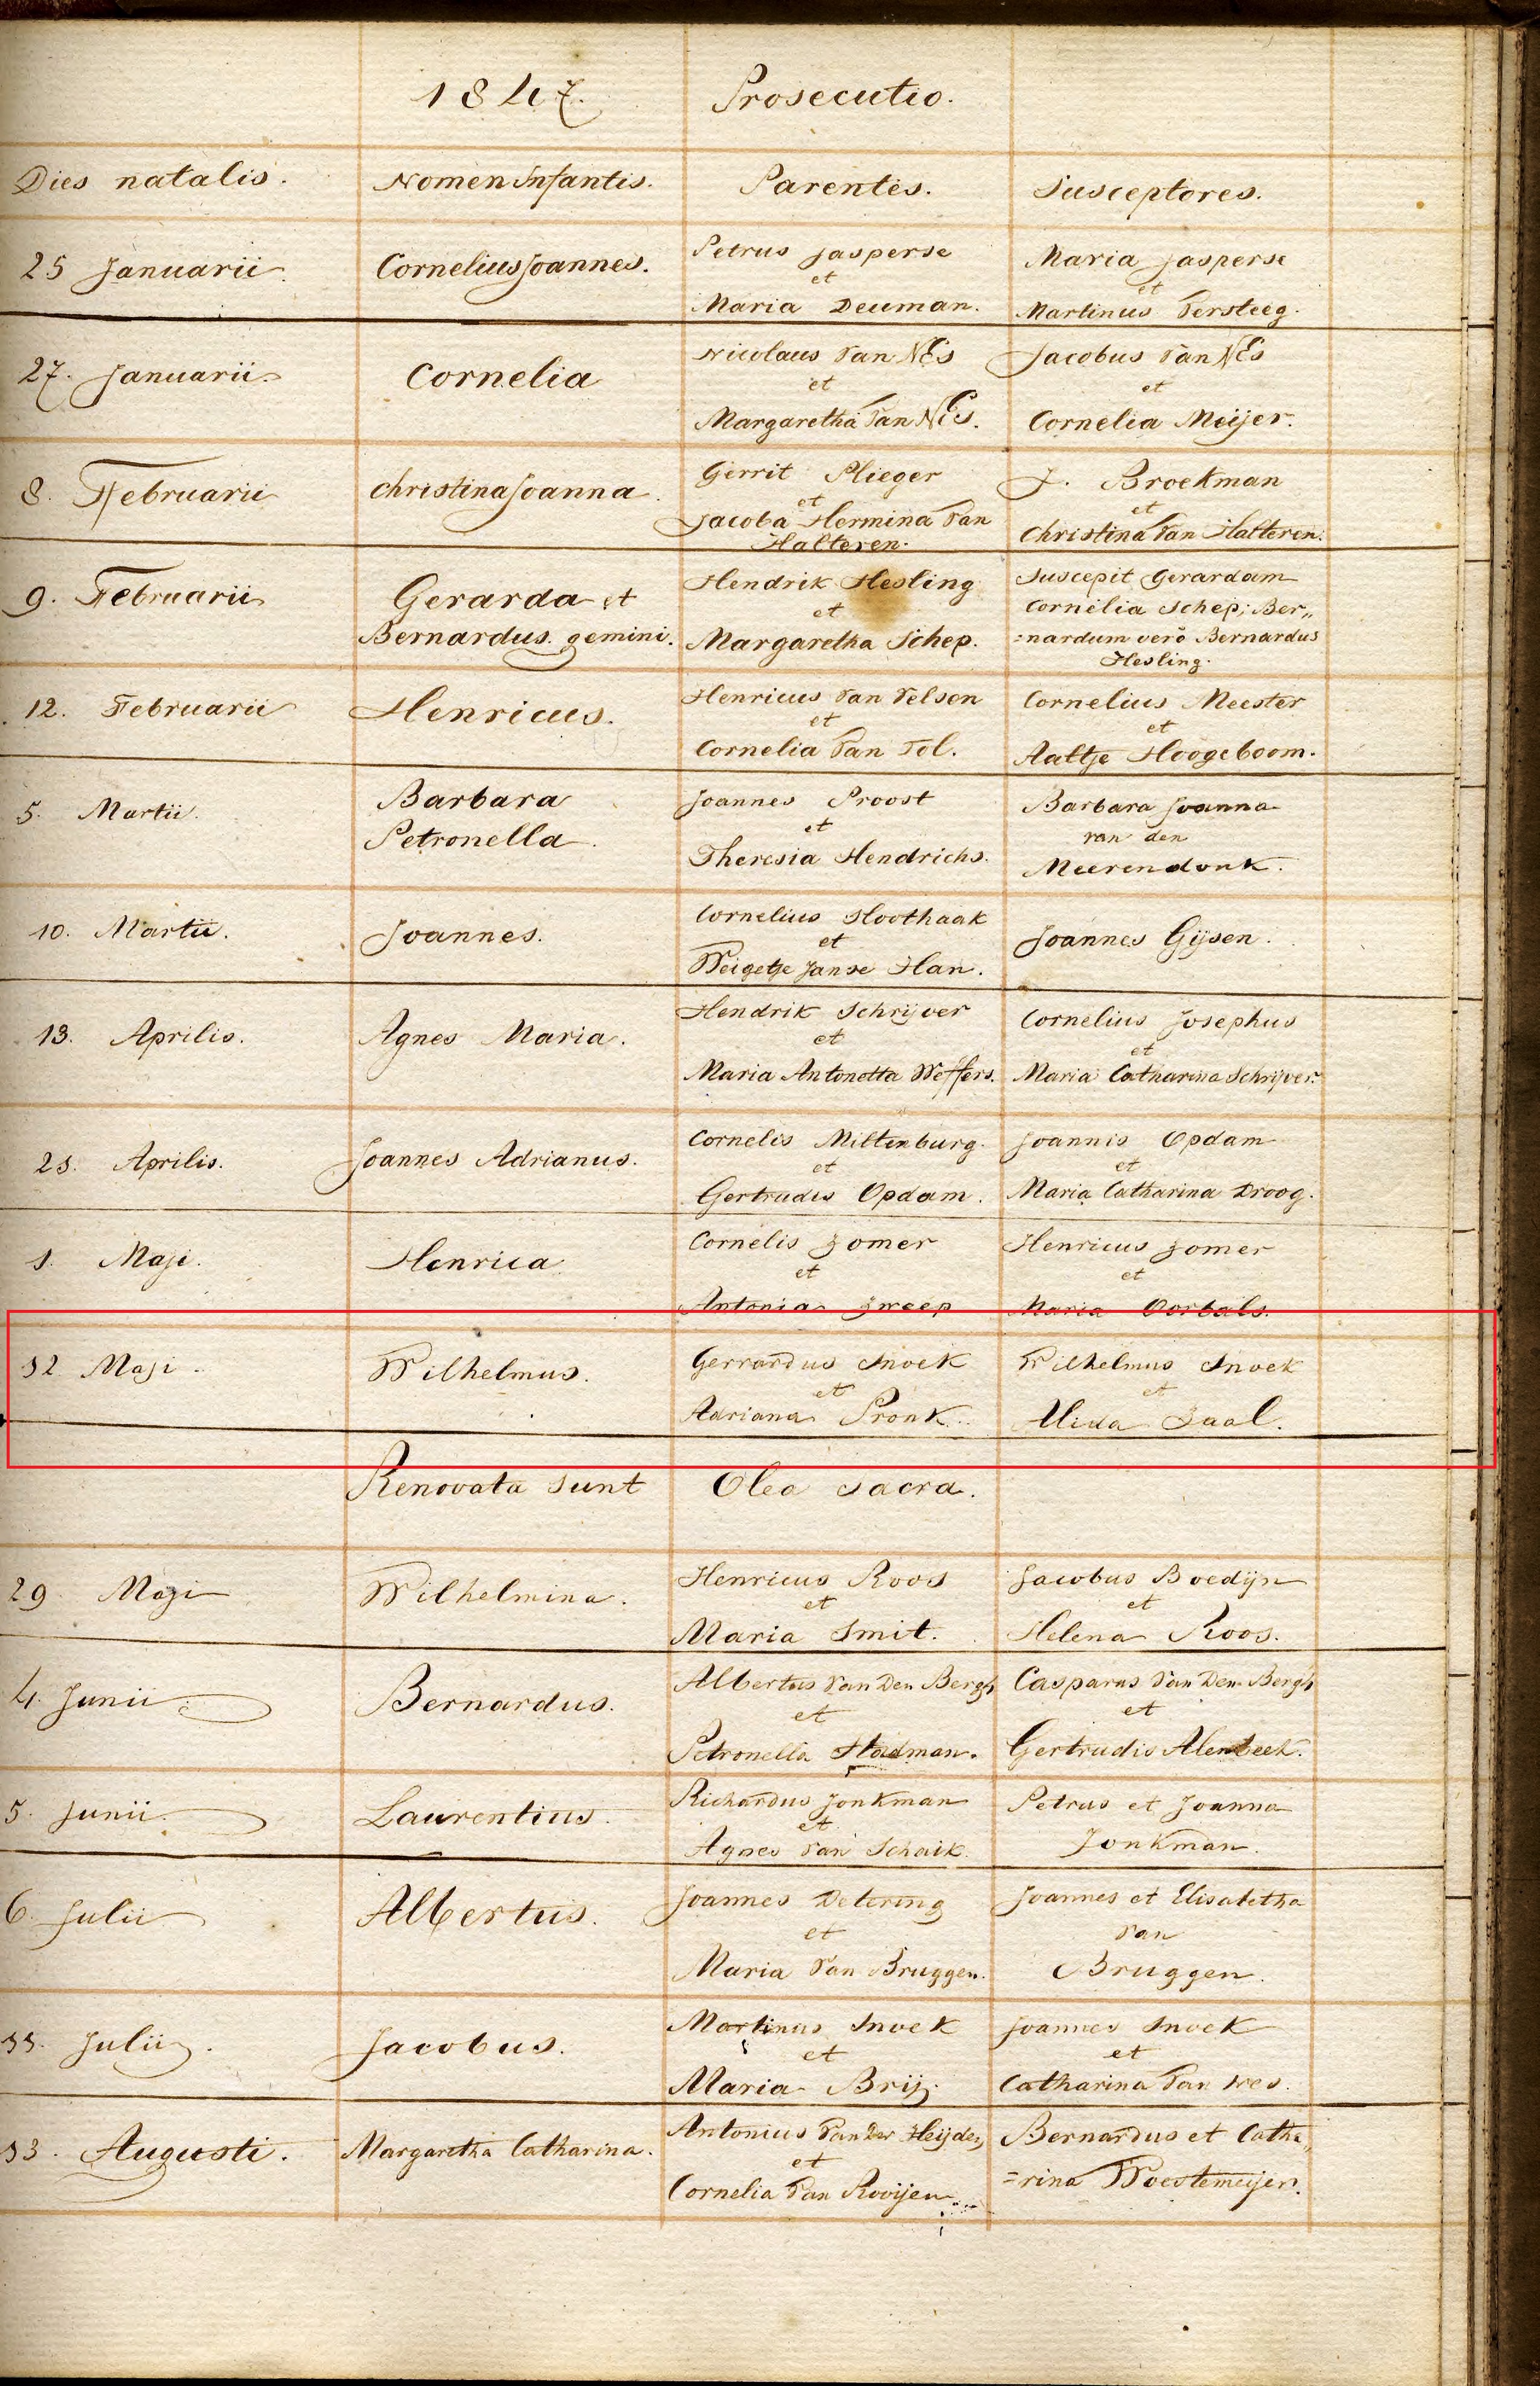 1847. Prosecutio.
Dies natalis. Nomen Infantis. Parentes. Susceptores.
25 Januarii. Cornelius Joannes. Petrus Jasperse Maria Jasperse
et et
Maria Deuman. Martinus Versteeg.
27. Januarii. Cornelia Nicolaus Van Nes Jacobus Van Nes
et et
Margaretha Van Nes. Cornelia Meijer.
8. Februarii Christina Joanna. Gerrit Plieger J. Broekman
et et
Jacoba Hermina Van Christina Van Halteren.
Halteren.
9. Februarii Gerarda et Hendrik Hesling Suscepit Gerardam
et Cornelia Schep; Ber„
Bernardus gemini. Margaretha Schep. =nardum vero Bernardus
Hesling.
12. Februarii Henricus. Henricus Van Velsen Cornelius Meester
et et
Cornelia Van Tol. Aaltje Hoogeboom.
5. Martii. Barbara Joannes Proost Barbara Joanna
Petronella. et van den
Theresia Hendrichs. Meerendonk.
10. Martii. Joannes. Cornelius Hoothaak Joannes Gijsen.
et
Weigetje Janse Han.
13. Aprilis. Agnes Maria. Hendrik Schrijver Cornelius Josephus
et et
Maria Antonetta Weffers. Maria Catharina Schrijver.
21. Aprilis. Joannes Adrianus. Cornelis Miltenburg. Joannis Opdam
et et
Gertrudis Opdam. Maria Catharina Droog.
1. Maji. Henrica Cornelis Zomer Henricus Zomer
et et
Antonia Zweep Maria Oorbals.
12 Maji. Wilhelmus. Gerrardus Snoek Wilhelmus Snoek
et et
Adriana Pronk. Alida Zaal.
Renovata sunt Olea sacra.
29. Maji Wilhelmina. Henricus Roos Jacobus Boedijn
et et
Maria Smit. Helena Roos.
4. Junii Bernardus. Albertus Van Den Bergh Casparus Van Den Bergh
et et
Petronella Gertrudis
5. Junii. Laurentius. Richardus Jonkman Petrus et Joanna
et
Agnes Van Schaik. Jonkman.
6. Julii Albertus. Joannes Detering Joannes et Elisabetha
et Van
Maria Van Bruggen. Bruggen.
11. Julii. Jacobus. Martinus Snoek Joannes Snoek
et et
Maria Brij. Catharina Van
13. Augusti. Margaretha Catharina. Antonius Van Der Heijden Bernardus et Catha„
et
Cornelia Van Rooijen =rina Woestemeijer.